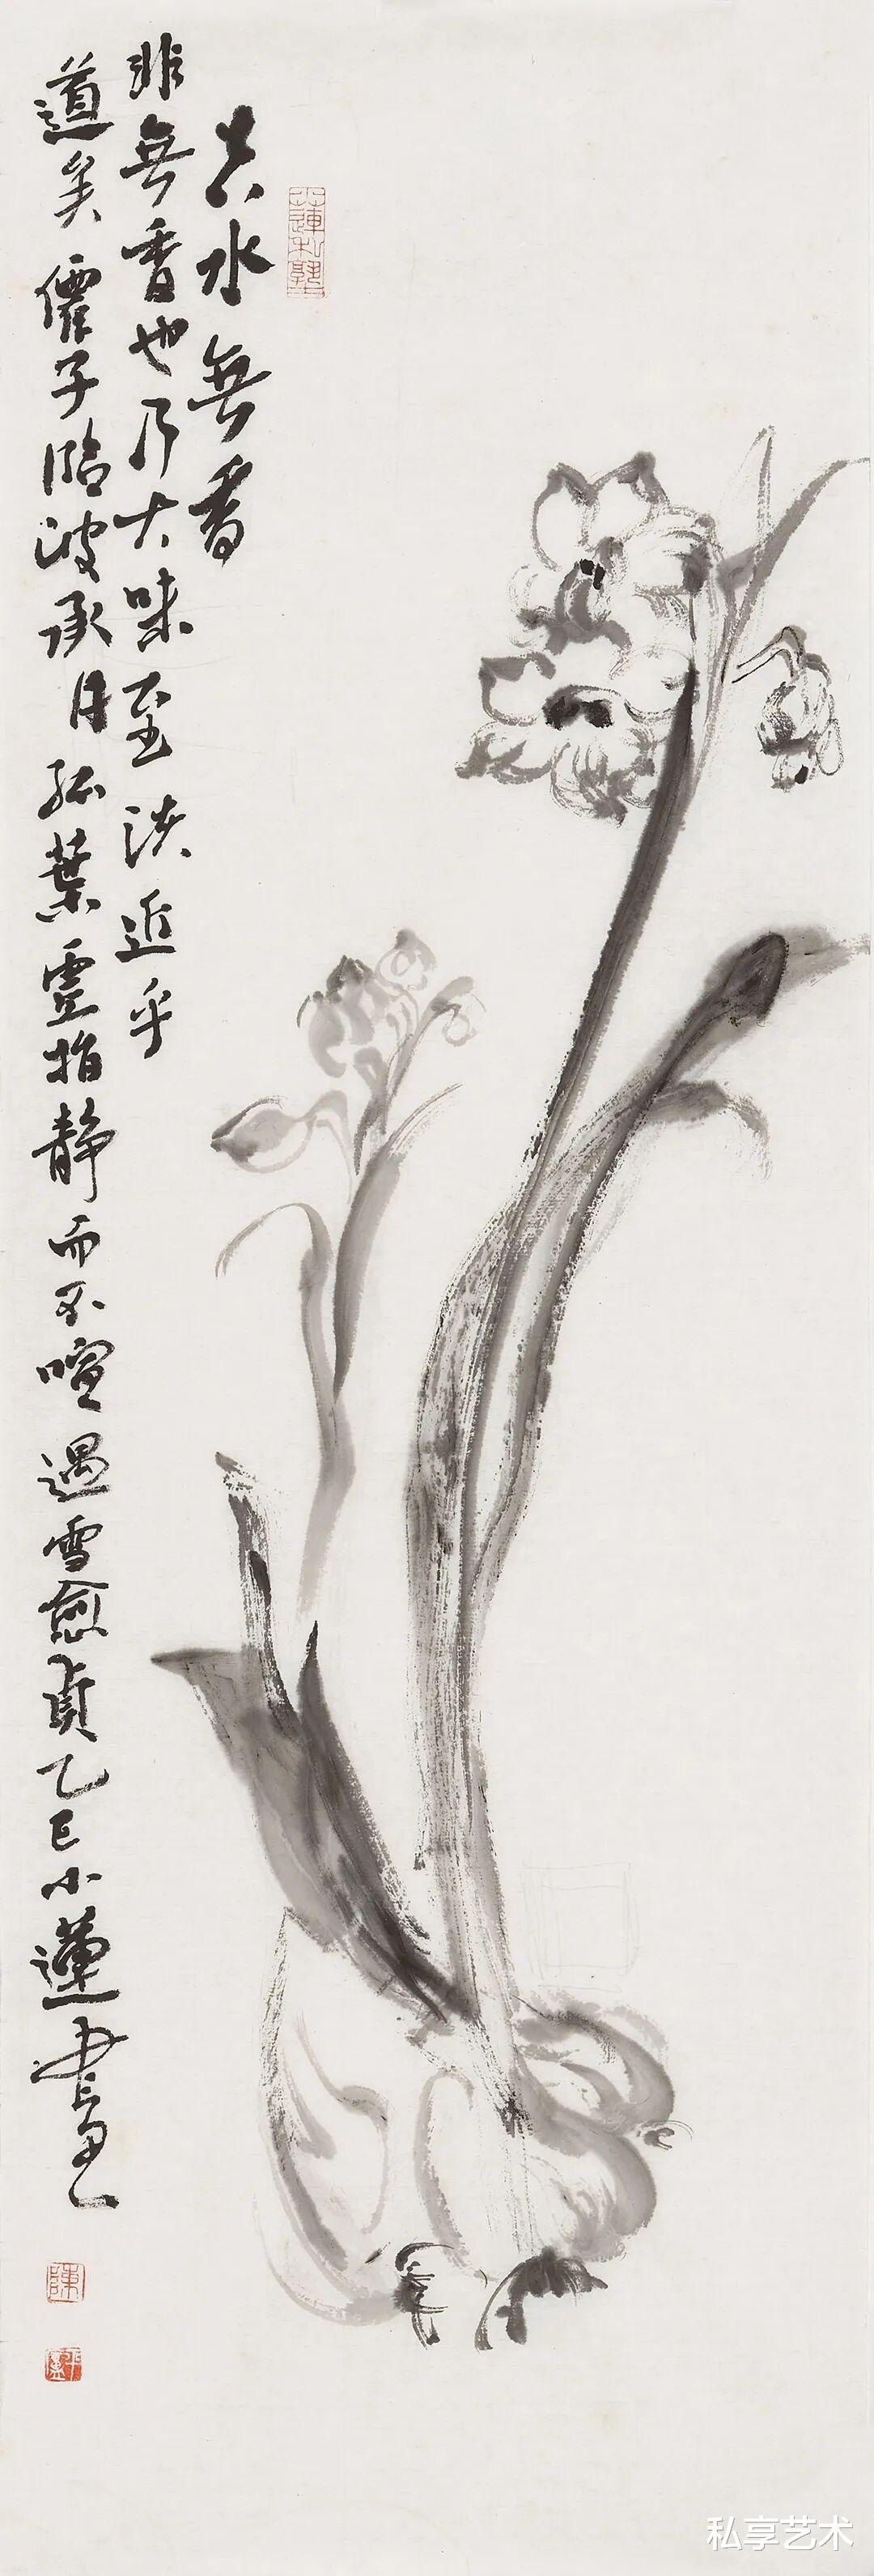 真水無香
非無香也乃大味至淡近乎
道矣僊子臨波承月孤葉虛指靜而不喧遇雪愈貞乙巳小蓮畫
蓮私塾
陳
私享艺术